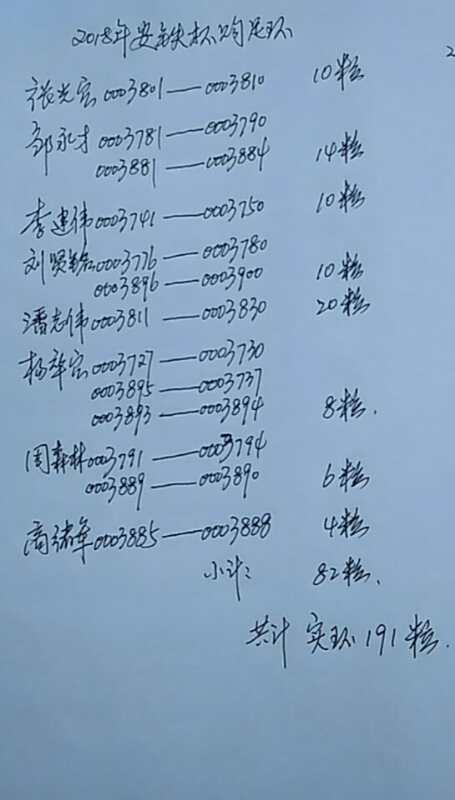 2018年安鉄杯公趵足环
张光宏 0003801——0003810 10粒
邹永才 0003781——0003790
0003881——0003884 14粒
李建伟 0003741——0003750 10粒
刘贤 0003776——0003780
0003896——0003900 10粒
潘志伟 0003811——0003830 20粒
杨 宏 0003727——0003730
0003895——0003737
0003893——0003894 8粒.
周森林 0003791——0003794
0003889——0003890 6粒
高绪 0003885——0003888 4粒
小计: 82粒.
共计 实环 191粒.